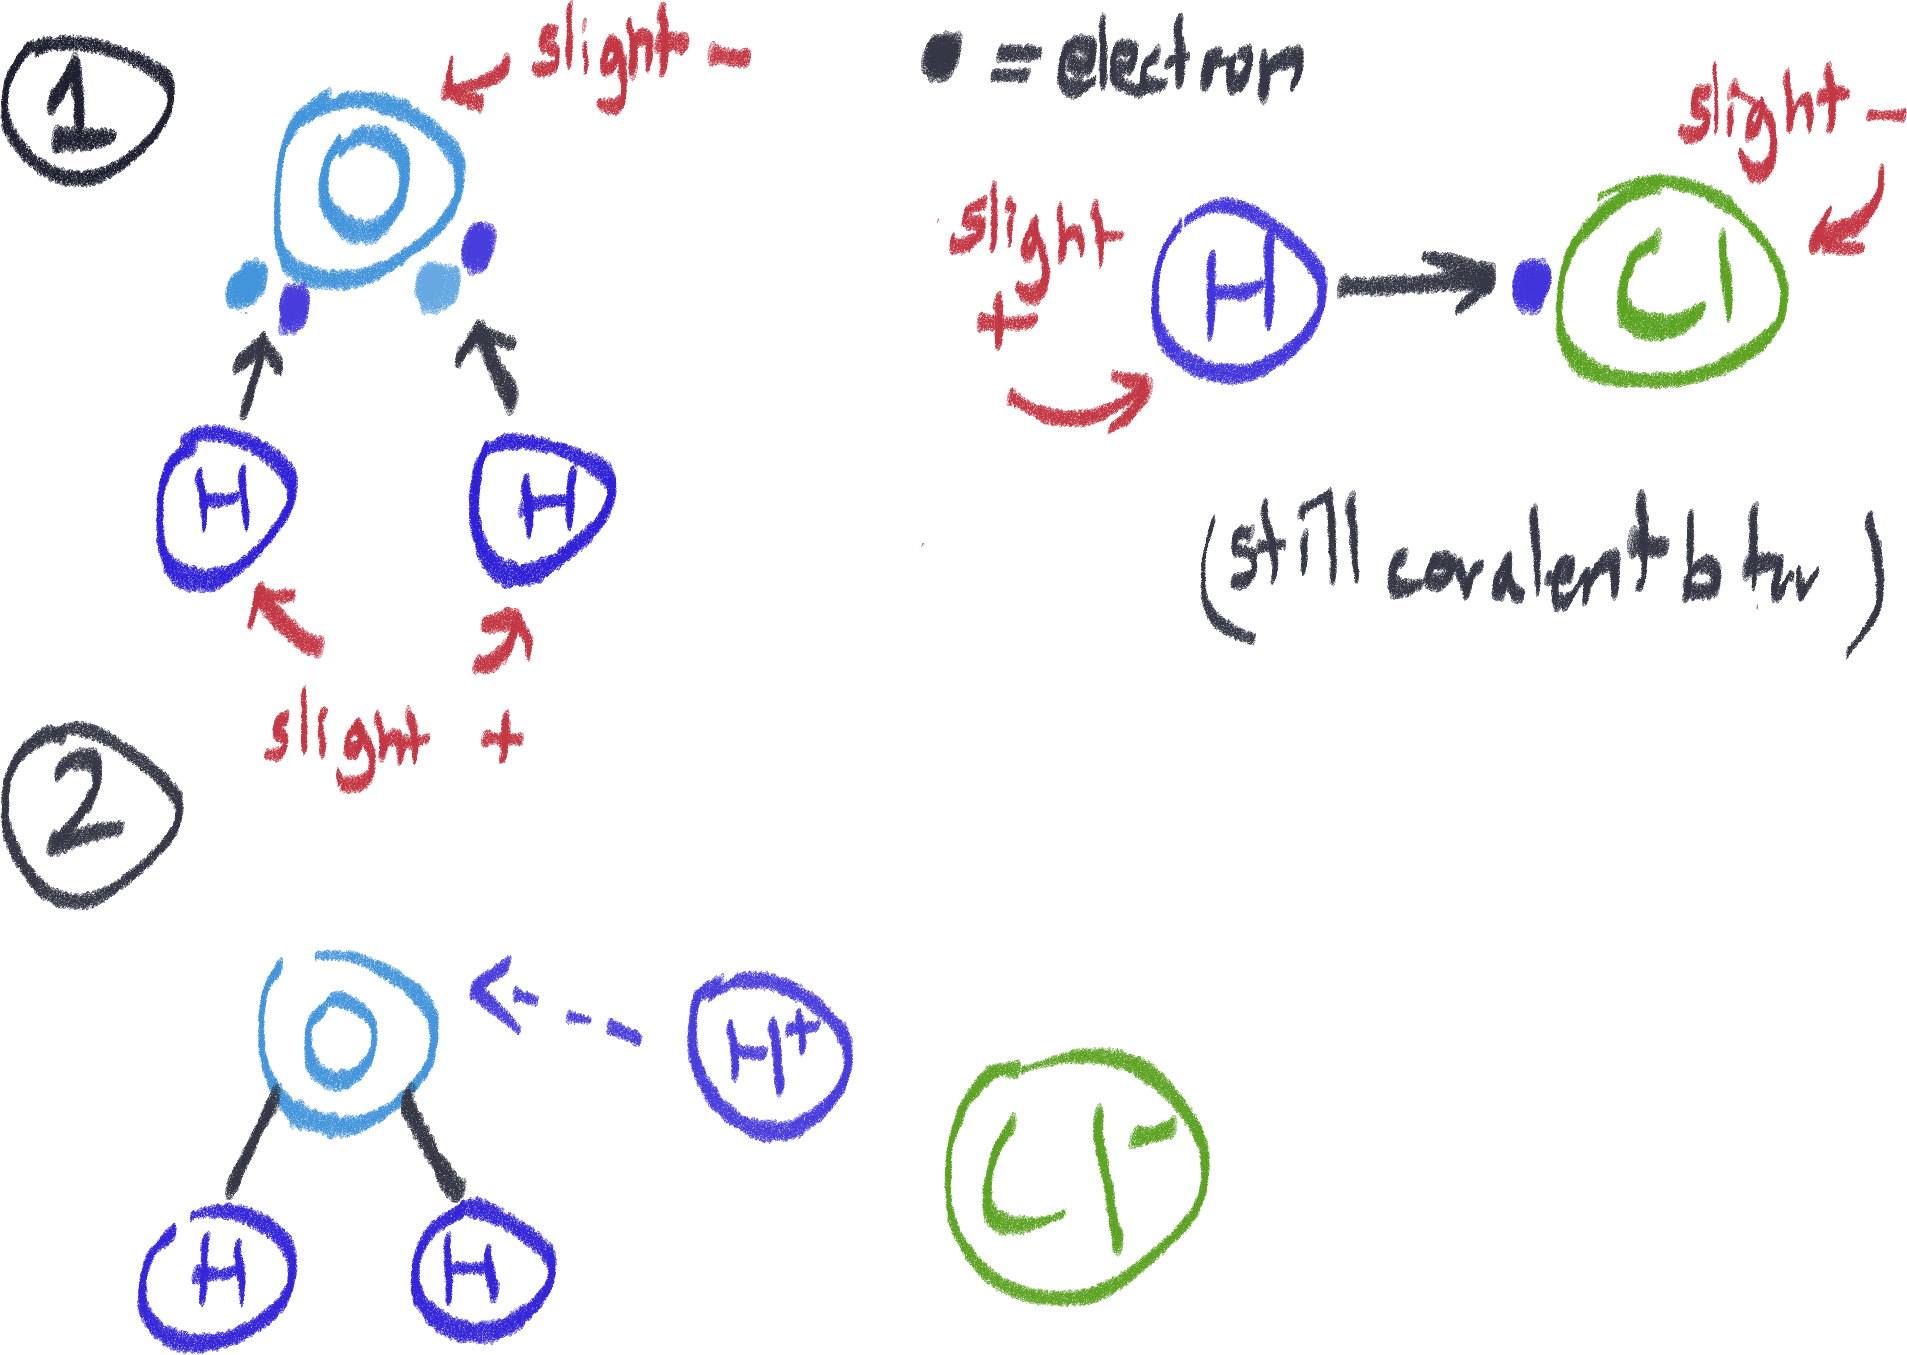 1
slight -
O
H H
slight +
= electron
slight -
slight
+
H Cl
(still covalent btw)
2
O
H+
Cl-
H H